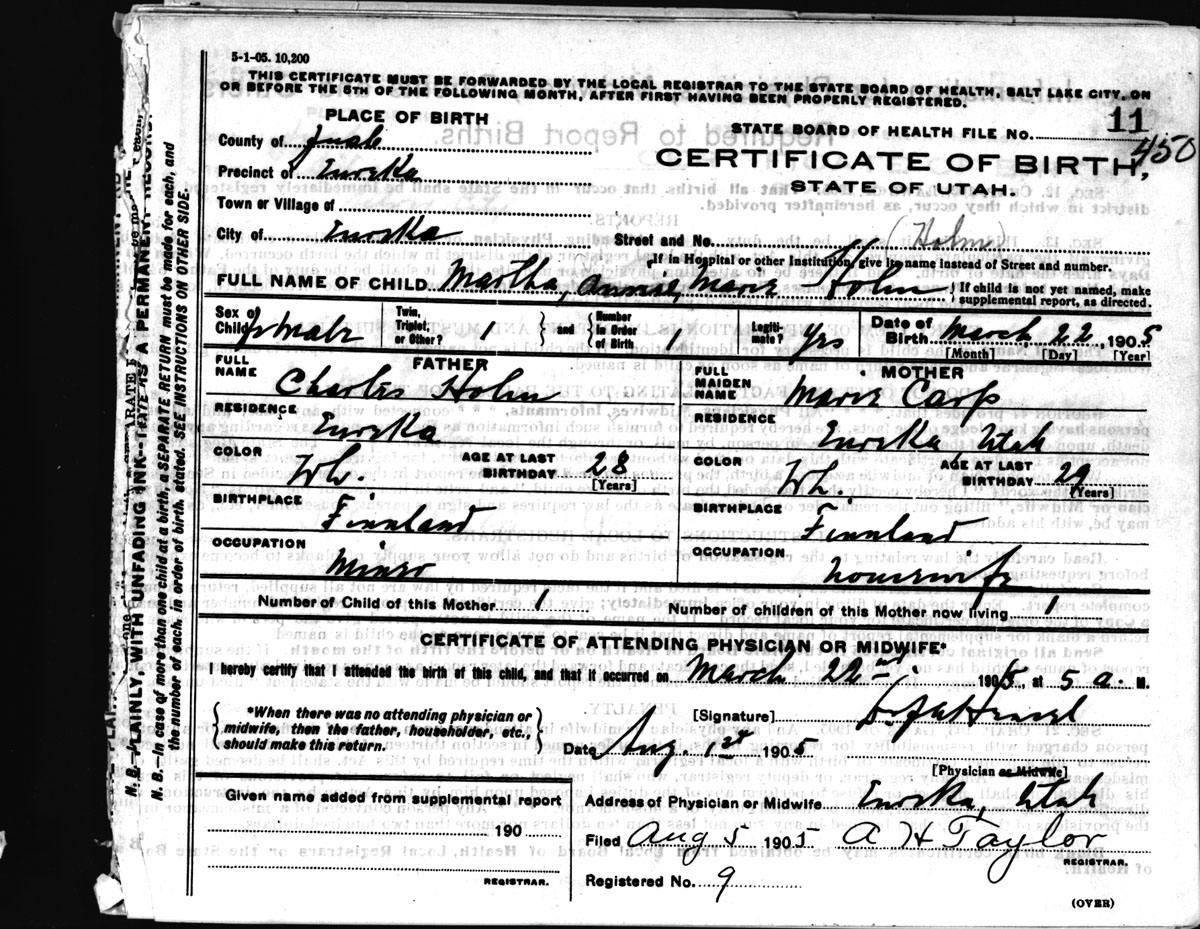 5-1-05. 10,200
THIS CERTIFICATE MUST BE FORWARDED BY THE LOCAL REGISTRAR TO THE STATE BOARD OF HEALTH, SALT LAKE CITY, ON
OR BEFORE THE 5TH OF THE FOLLOWING MONTH, AFTER FIRST HAVING BEEN PROPERLY REGISTERED.
PLACE OF BIRTH
STATE BOARD OF HEALTH FILE NO. 11
450
County of Juab
CERTIFICATE OF BIRTH,
STATE OF UTAH.
Precinct of Eureka
Town or Village of
City of Eureka
Street and No. (Holm)
If in Hospital or other Institution, give its name instead of Street and number.
FULL NAME OF CHILD Martha, Annie, Marie Holm
If child is not yet named, make supplemental report, as directed.
Sex of Child female Twin, Triplet, or Other? 1 and Number in Order of Birth 1 Legitimate? yes Date of Birth March 22, 1905
[Month] [Day] [Year]
FATHER
FULL NAME Charles Holm
RESIDENCE Eureka
COLOR Wh. AGE AT LAST BIRTHDAY 28
[Years]
BIRTHPLACE Finnland
OCCUPATION Miner
MOTHER
FULL MAIDEN NAME Marie Carp
RESIDENCE Eureka Utah
COLOR Wh. AGE AT LAST BIRTHDAY 29
[Years]
BIRTHPLACE Finnland
OCCUPATION housewife
Number of Child of this Mother 1 Number of children of this Mother now living 1
CERTIFICATE OF ATTENDING PHYSICIAN OR MIDWIFE*
I hereby certify that I attended the birth of this child, and that it occurred on March 22nd, 1905, at 5 a. M.
*When there was no attending physician or
midwife, then the father, householder, etc.,
should make this return.
[Signature]
Date Aug. 1st 1905
[Physician as Midwife]
Given name added from supplemental report
190
REGISTRAR.
Address of Physician or Midwife Eureka, Utah
Filed Aug 5 1905 A H Taylor
REGISTRAR.
Registered No. 9
(OVER)
N. B.—PLAINLY, WITH UNFADING INK—THIS IS A PERMANENT RECORD.
N. B.—In case of more than one child at a birth, a SEPARATE RETURN must be made for each, and
the number of each, in order of birth, stated. SEE INSTRUCTIONS ON OTHER SIDE.